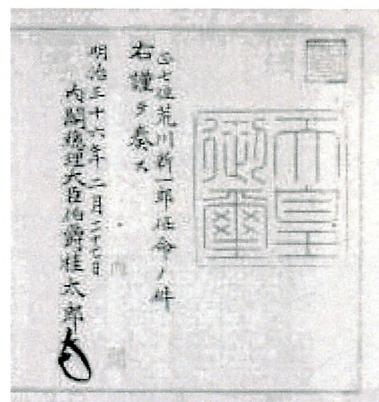 天皇
御璽
正七位荒川新一郎任命ノ件
右謹テ奏ス
明治三十六年二月二十七日
内閣総理大臣伯爵桂太郎